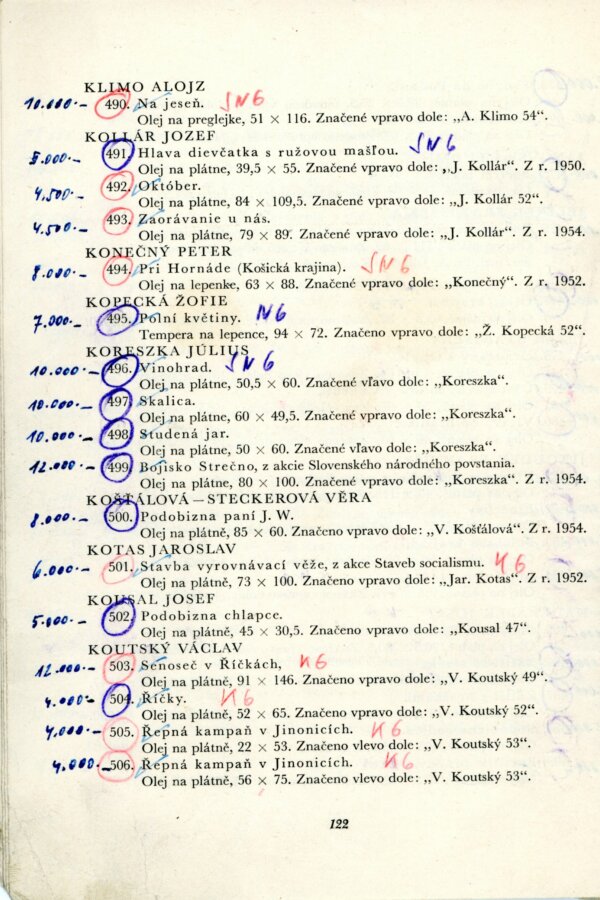 KLIMO ALOJZ
10.000.- 490. Na jeseň. SNG
Olej na preglejke, 51 × 116. Značené vpravo dole: „A. Klimo 54“.
KOLLÁR JOZEF
5.000.- 491. Hlava dievčatka s ružovou mašľou. SNG
Olej na plátne, 39,5 × 55. Značené vpravo dole: „J. Kollár“. Z r. 1950.
4.500.- 492. Október.
Olej na plátne, 84 × 109,5. Značené vpravo dole: „J. Kollár 52“.
4.500.- 493. Zaorávanie u nás.
Olej na plátne, 79 × 89. Značené vpravo dole: „J. Kollár“. Z r. 1954.
KONEČNÝ PETER
8.000.- 494. Pri Hornáde (Košická krajina). SNG
Olej na lepenke, 63 × 88. Značené vpravo dole: „Konečný“. Z r. 1952.
KOPECKÁ ŽOFIE
7.000.- 495. Polní květiny. NG
Tempera na lepence, 94 × 72. Značeno vpravo dole: „Ž. Kopecká 52“.
KORESZKA JÚLIUS
10.000.- 496. Vinohrad. SNG
Olej na plátne, 50,5 × 60. Značené vľavo dole: „Koreszka“.
10.000.- 497. Skalica.
Olej na plátne, 60 × 49,5. Značené vpravo dole: „Koreszka“.
10.000.- 498. Studená jar.
Olej na plátne, 50 × 60. Značené vľavo dole: „Koreszka“.
12.000.- 499. Bojisko Strečno, z akcie Slovenského národného povstania.
Olej na plátne, 80 × 100. Značené vpravo dole: „Koreszka“. Z r. 1954.
KOŠŤÁLOVÁ – STECKEROVÁ VĚRA
8.000.- 500. Podobizna paní J. W.
Olej na plátně, 85 × 60. Značeno vpravo dole: „V. Košťálová“. Z r. 1954.
KOTAS JAROSLAV
6.000.- 501. Stavba vyrovnávací věže, z akce Staveb socialismu. NG
Olej na plátně, 73 × 100. Značeno vpravo dole: „Jar. Kotas“. Z r. 1952.
KOUSAL JOSEF
5.000.- 502. Podobizna chlapce.
Olej na plátně, 45 × 30,5. Značeno vpravo dole: „Kousal 47“.
KOUTSKÝ VÁCLAV
12.000.- 503. Senoseč v Říčkách, NG
Olej na plátně, 91 × 146. Značeno vpravo dole: „V. Koutský 49“.
4.000.- 504. Říčky. NG
Olej na plátně, 52 × 65. Značeno vpravo dole: „V. Koutský 52“.
4.000.- 505. Řepná kampaň v Jinonicích. NG
Olej na plátně, 22 × 53. Značeno vlevo dole: „V. Koutský 53“.
4.000.- 506. Řepná kampaň v Jinonicích. NG
Olej na plátně, 56 × 75. Značeno vlevo dole: „V. Koutský 53“.
122